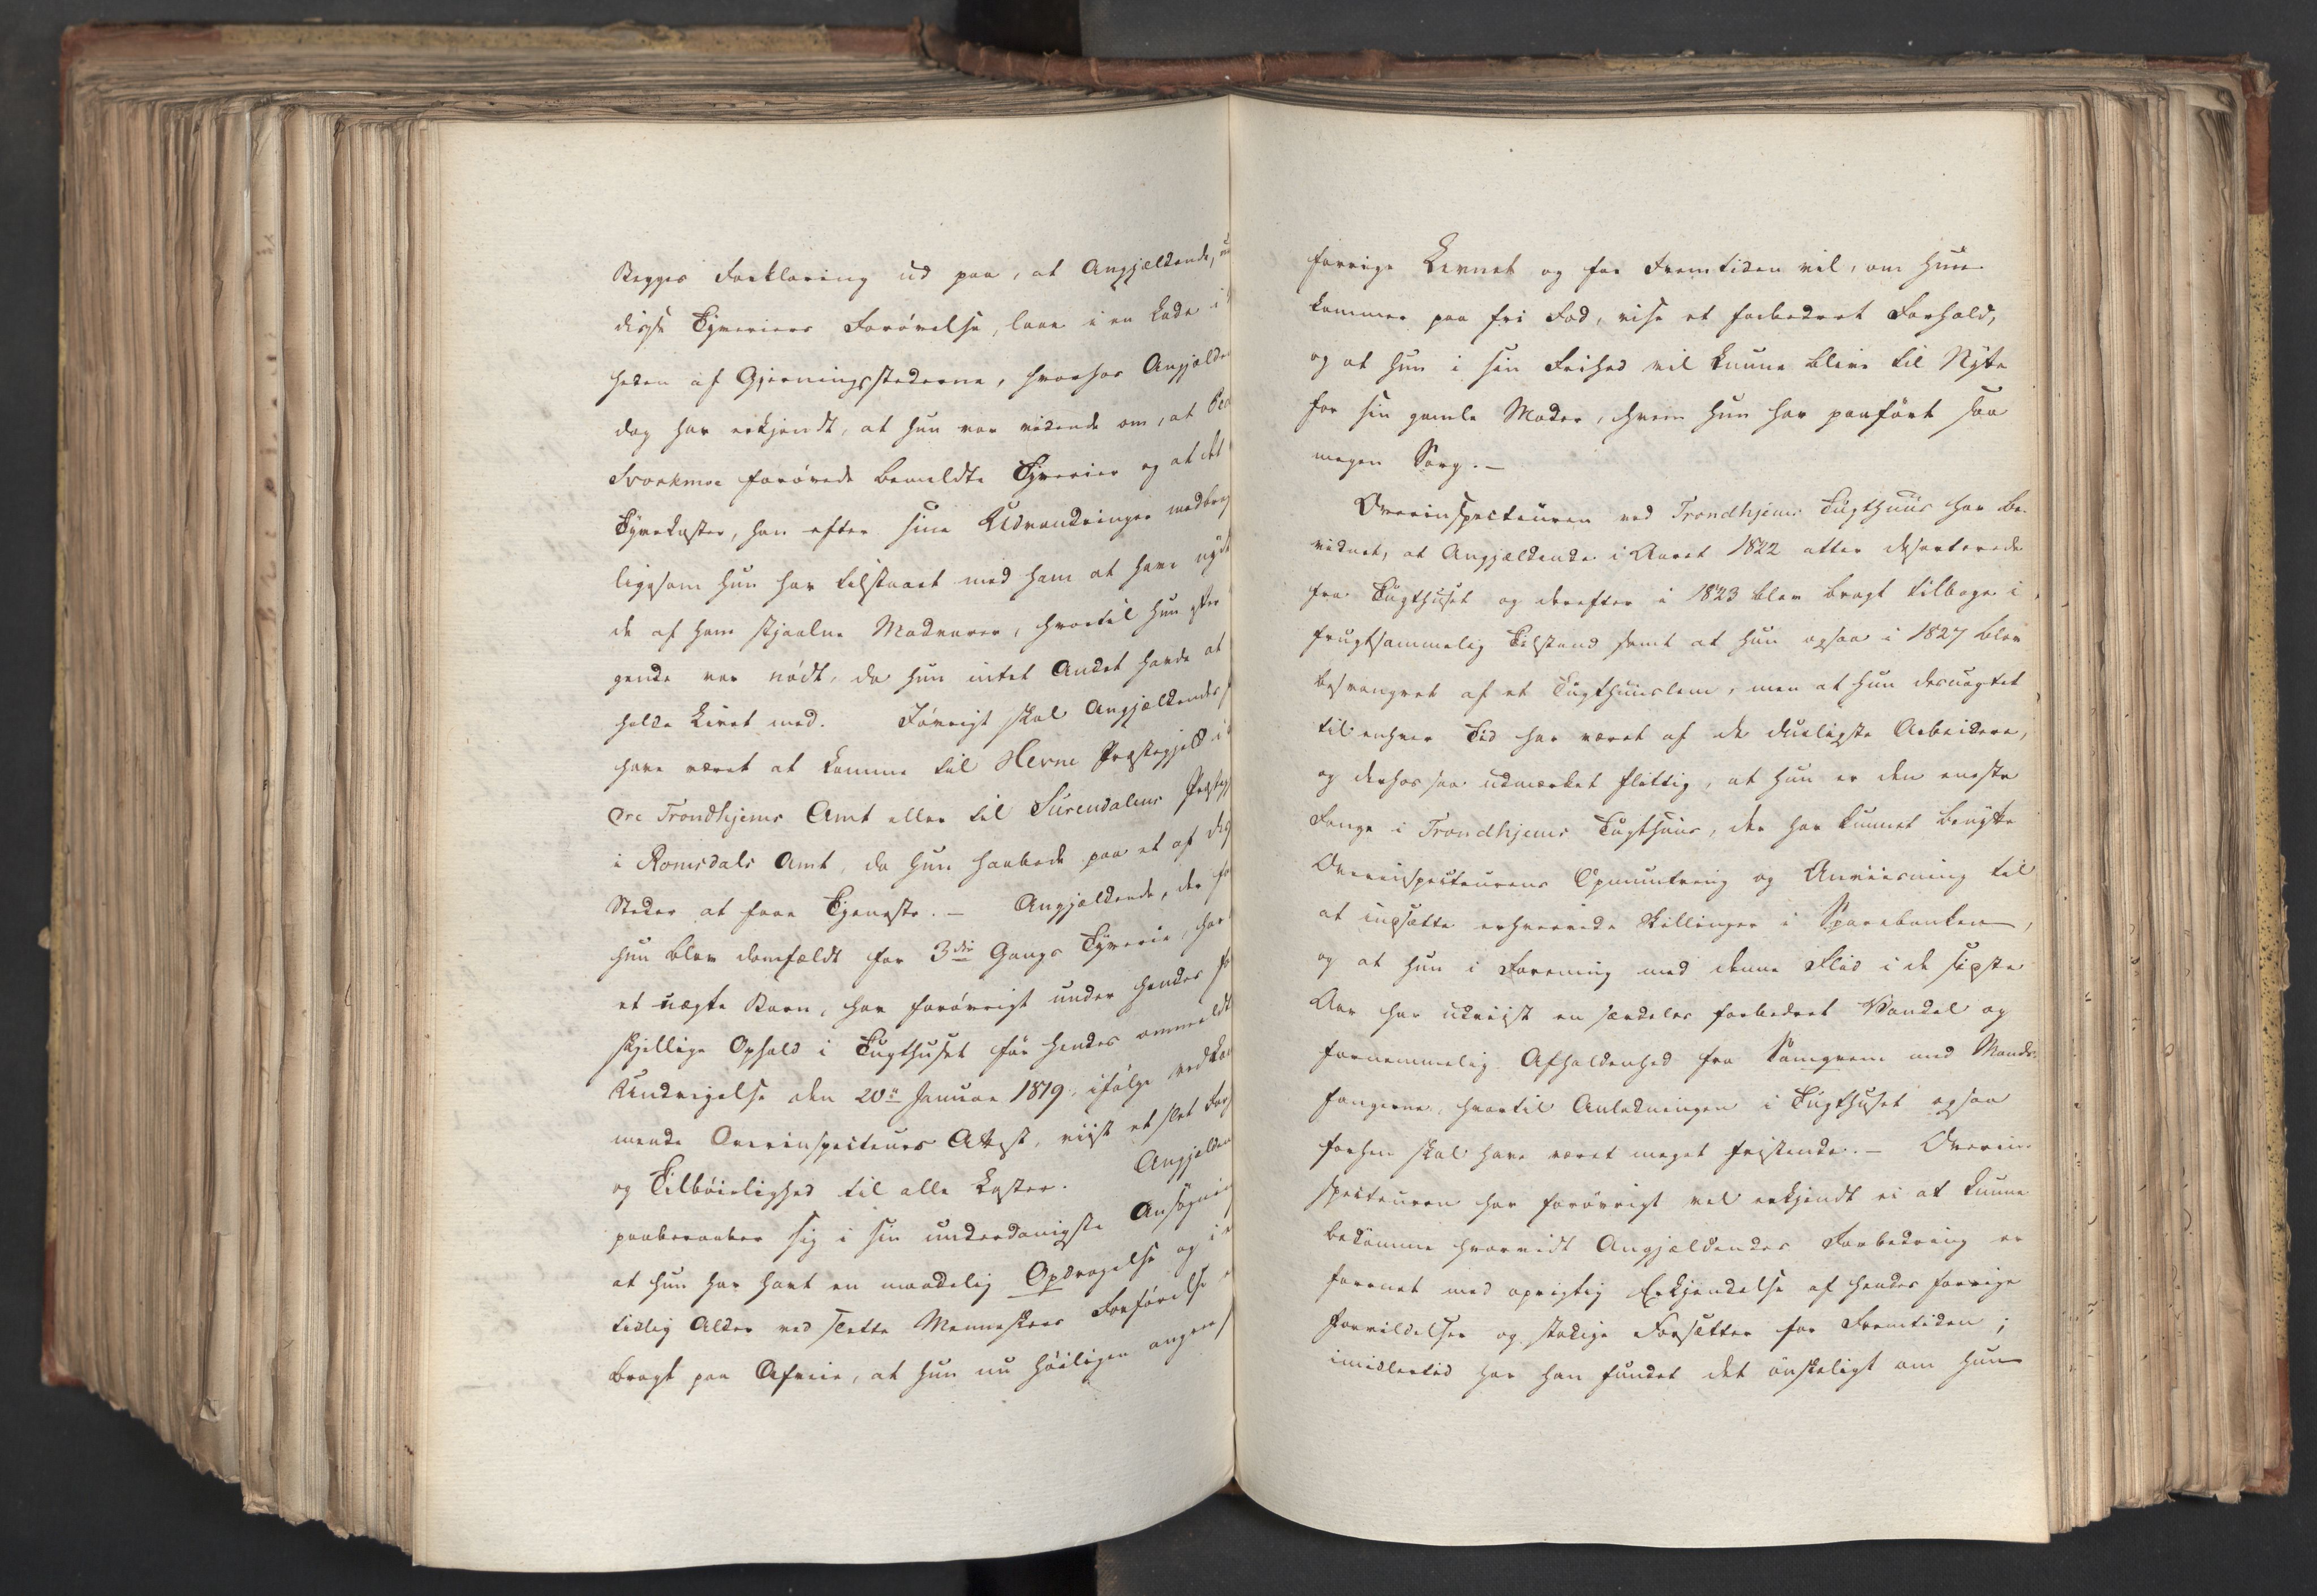 Begges Forklaring ud paa, at Angjældende,
disse Tyveriers Forøvelse, laae i en Lade i
heden af Gjerningsstederne, hvorhos Angjælde
dog har erkjendt, at hun var vidende om, at
Svorkmoe forøvede bemeldte Tyverier og at det
Tyvekoster, han efter sine Udvandringer medbrag
ligesom hun har tilstaaet med ham at have nydt
de af ham stjaalne Madvarer, hvortil hun efter
gende var nødt, da hun intet Andet havde at
holde Livet med. Iøvrigt skal Angjældendes
have været at komme til Hevne Præstegjeld i
dre Trondhjems Amt eller til Surendalens Præstegj
i Romsdals Amt, da hun haabede paa et af dis
Steder at faae Tjeneste. – Angjældende, der fø
hun blev domfældt for 3die Gangs Tyverie, har
et uægte Barn, har forøvrigt under hendes for
skjellige Ophold i Tugthuset før hendes ommeldt
Undvigelse den 20de Januar 1819, ifølge vedkom
mende Overinspecteurs Attest, viist et slet For
og Tilbøielighed til alle Laster. Angjælden
paaberaaber sig i sin underdanigste Ansøgnin
at hun har havt en maadelig Opdragelse og i
tidlig Alder ved slette Menneskers Forførelse
bragt paa Afveie, at hun nu høiligen angrer
forrige Levnet og for Fremtiden vil, om hun
kommer paa fri Fod, vise et forbedret Forhold,
og at hun i sin Frihed vil kunne blive til Nytte
for sin gamle Moder, hvem hun har paaført saa
megen Sorg. –
Overinspecteuren ved Trondhjems Tugthuus har be-
vidnet, at Angjældende i Aaret 1822 atter deserterede
fra Tugthuset og derefter i 1823 blev bragt tilbage i
frugtsommelig Tilstand samt at hun ogsaa i 1827 blev
besvangret af et Tugthuuslem, men at hun desuagtet
til enhver Tid har været af de dueligste Arbeidere,
og derhos saa udmærket flittig, at hun er den eneste
Fange i Trondhjems Tugthuus, der har kunnet benytte
Overinspecteurens Opmuntring og Anviisning til
at indsætte erhvervede Skillinger i Sparebanken,
og at hun i Forening med denne Flid i de sidste
Aar har udviist en særdeles forbedret Vandel og
fornemmelig Afholdenhed fra Samqvem med Mands-
fangerne, hvortil Anledningen i Tugthuset ogsaa
forhen skal have været meget fristende. – Overin-
specteuren har forøvrigt vel erkjendt ei at kunne
bedømme hvorvidt Angjældendes Forbedring er
forenet med oprigtig Erkjendelse af hendes forrige
Forvildelser og stadige Forsætter for Fremtiden;
imidlertid har han fundet det ønskeligt om hun